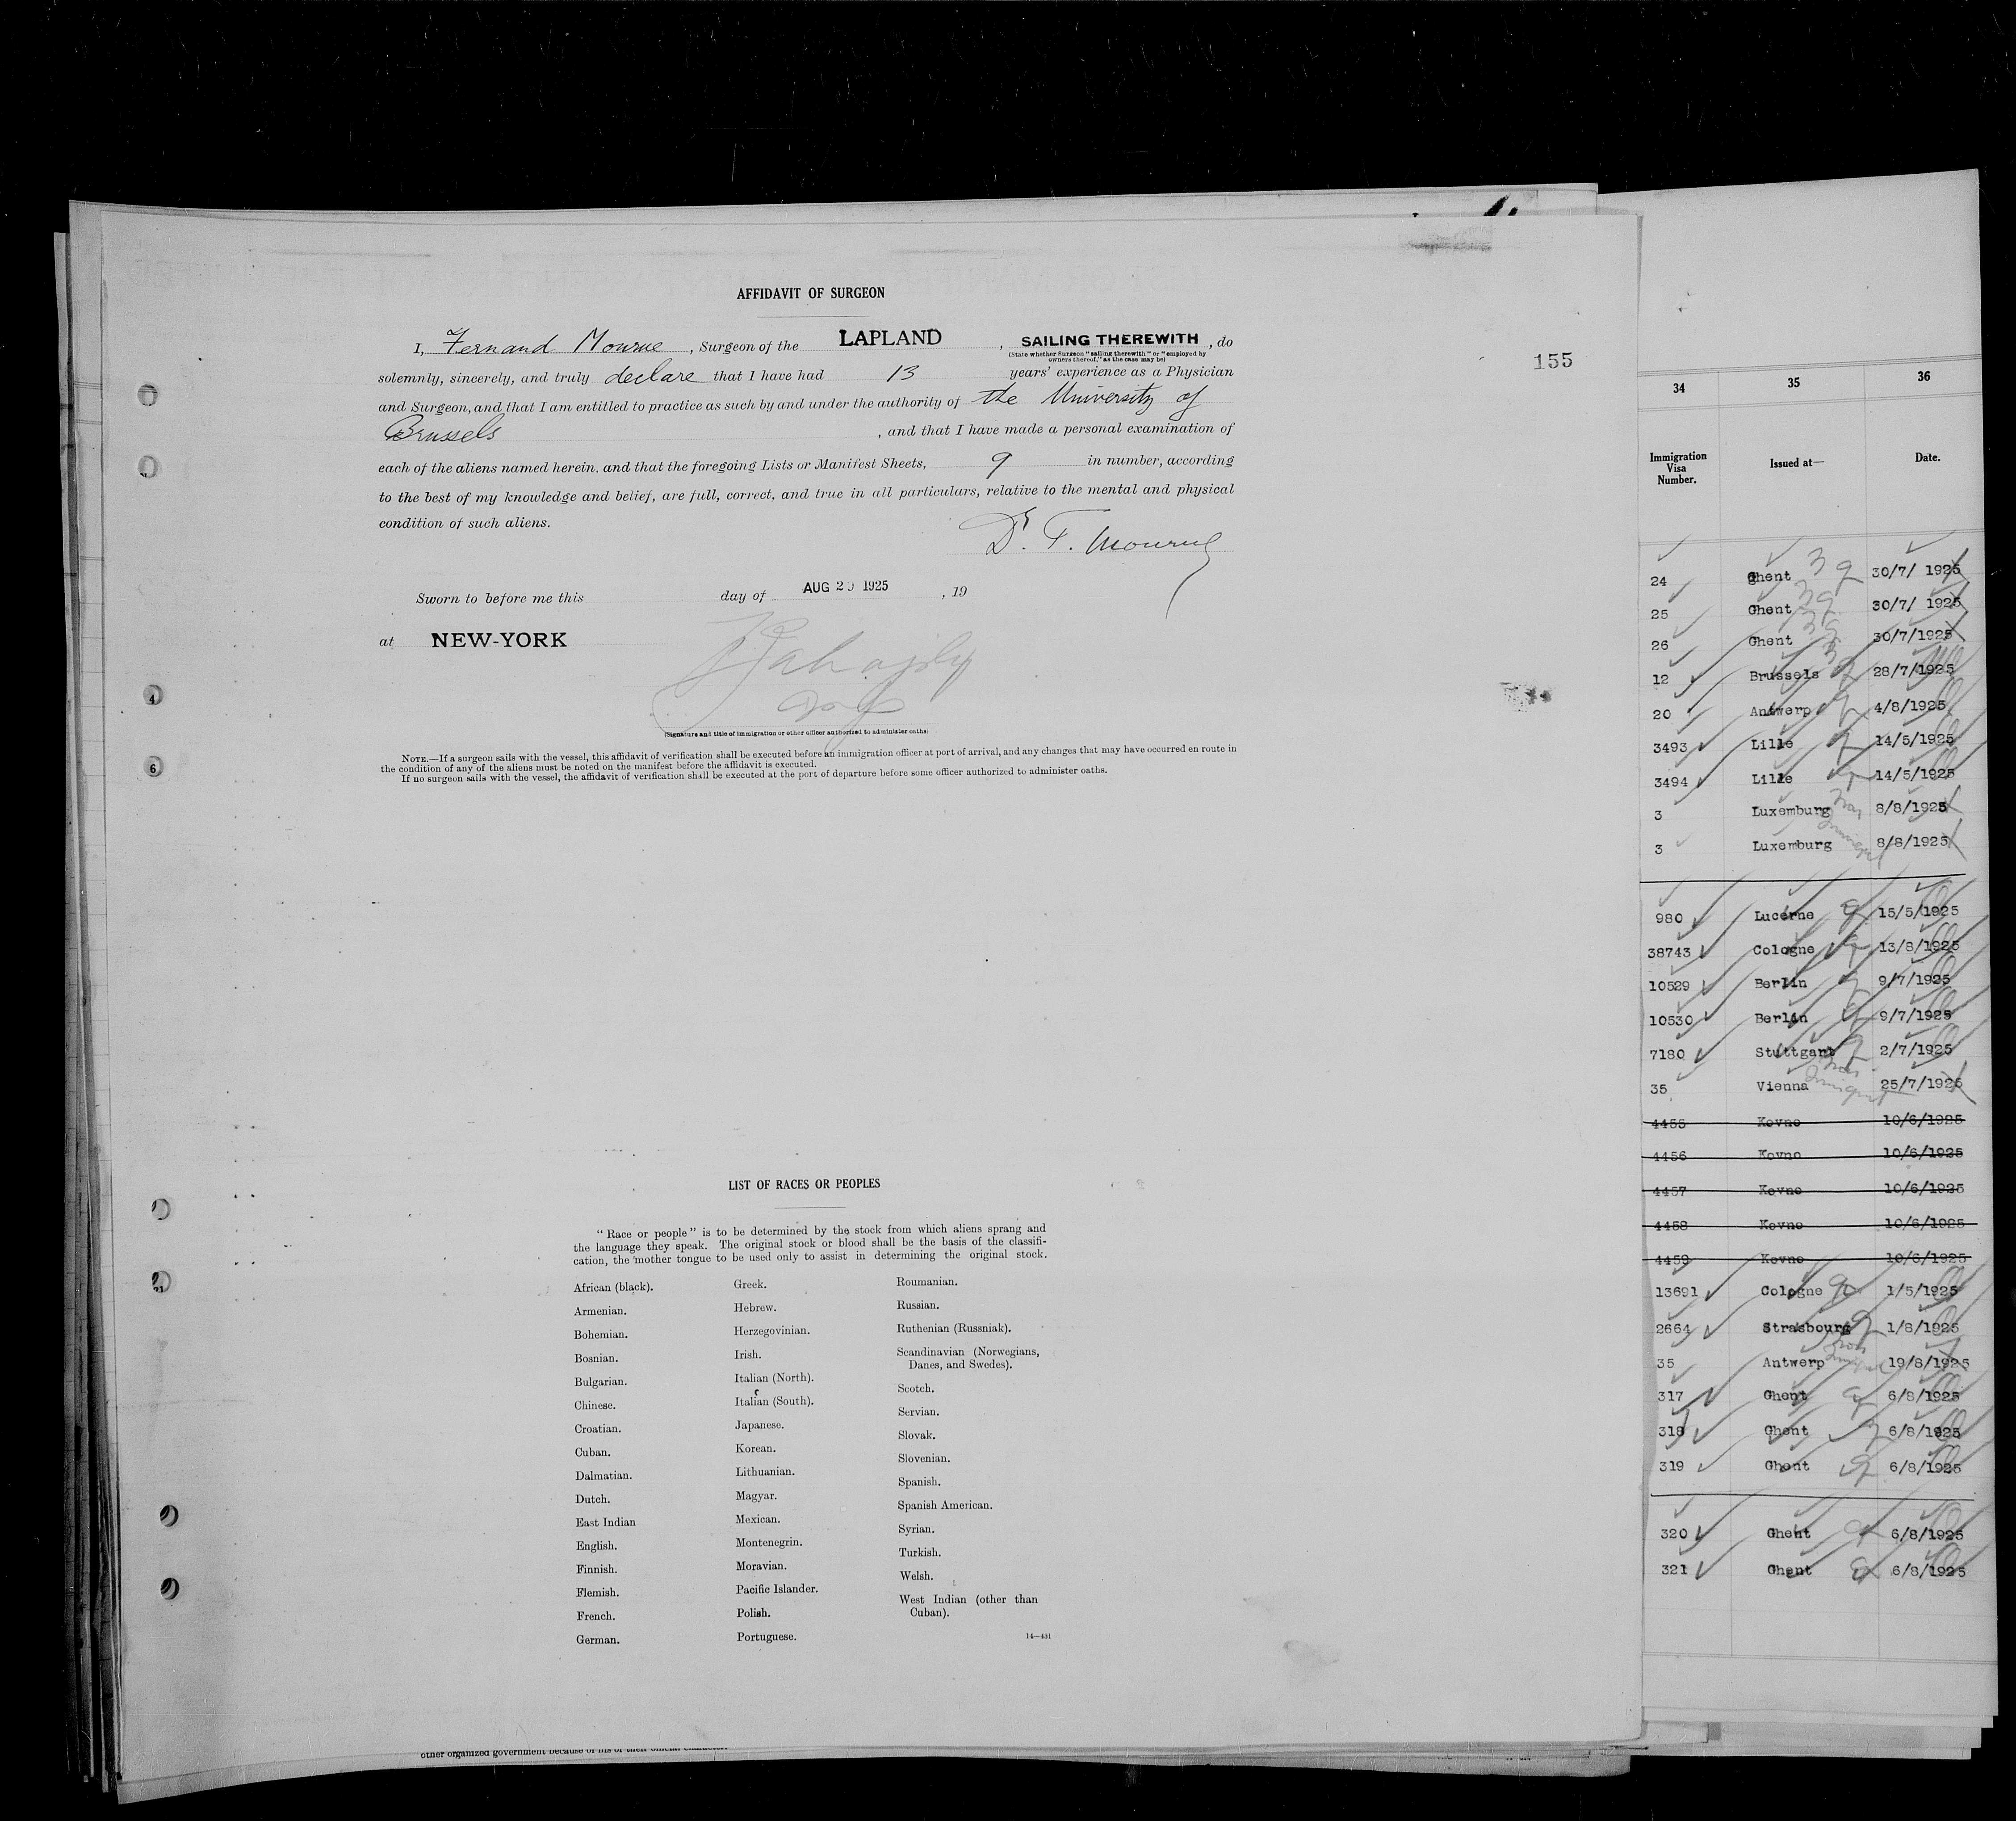 AFFIDAVIT OF SURGEON
I, Fernand Mourue, Surgeon of the LAPLAND, SAILING THEREWITH, do
(State whether Surgeon "sailing therewith" or "employed by
owners thereof," as the case may be)
solemnly, sincerely, and truly declare that I have had 13 years' experience as a Physician
and Surgeon, and that I am entitled to practice as such by and under the authority of the University of
Brussels, and that I have made a personal examination of
each of the aliens named herein, and that the foregoing Lists or Manifest Sheets, 9 in number, according
to the best of my knowledge and belief, are full, correct, and true in all particulars, relative to the mental and physical
condition of such aliens.
Dr. F. Mourue
Sworn to before me this day of AUG 20 1925, 19
at NEW-YORK
(Signature and title of immigration or other officer authorized to administer oaths)
NOTE.—If a surgeon sails with the vessel, this affidavit of verification shall be executed before an immigration officer at port of arrival, and any changes that may have occurred en route in
the condition of any of the aliens must be noted on the manifest before the affidavit is executed.
If no surgeon sails with the vessel, the affidavit of verification shall be executed at the port of departure before some officer authorized to administer oaths.
155
4
6
LIST OF RACES OR PEOPLES
"Race or people" is to be determined by the stock from which aliens sprang and
the language they speak. The original stock or blood shall be the basis of the classifi-
cation, the mother tongue to be used only to assist in determining the original stock.
African (black).
Armenian.
Bohemian.
Bosnian.
Bulgarian.
Chinese.
Croatian.
Cuban.
Dalmatian.
Dutch.
East Indian
English.
Finnish.
Flemish.
French.
German.
Greek.
Hebrew.
Herzegovinian.
Irish.
Italian (North).
Italian (South).
Japanese.
Korean.
Lithuanian.
Magyar.
Mexican.
Montenegrin.
Moravian.
Pacific Islander.
Polish.
Portuguese.
Roumanian.
Russian.
Ruthenian (Russniak).
Scandinavian (Norwegians,
Danes, and Swedes).
Scotch.
Servian.
Slovak.
Slovenian.
Spanish.
Spanish American.
Syrian.
Turkish.
Welsh.
West Indian (other than
Cuban).
14—431
other organized government because of his or their official character
34 35 36
Immigration
Visa
Number.
Issued at—
Date.
24 Ghent 3 q 30/7/ 1925
25 Ghent 30/7/ 1925
26 Ghent 30/7/1925
12 Brussels 28/7/1925
20 Antwerp 4/8/1925
3493 Lille 14/5/1925
3494 Lille 14/5/1925
3 Luxemburg 8/8/1925
3 Luxemburg 8/8/1925
980 Lucerne 15/5/1925
38743 Cologne 13/8/1925
10529 Berlin 9/7/1925
10530 Berlin 9/7/1925
7180 Stuttgart 2/7/1925
35 Vienna 25/7/1925
4455 Kovno 10/6/1925
4456 Kovno 10/6/1925
4457 Kovno 10/6/1925
4458 Kovno 10/6/1925
4459 Kovno 10/6/1925
13691 Cologne 1/5/1925
2664 Strasbourg 1/8/1925
35 Antwerp 19/8/1925
317 Ghent 6/8/1925
318 Ghent 6/8/1925
319 Ghent 6/8/1925
320 Ghent 6/8/1925
321 Ghent 6/8/1925